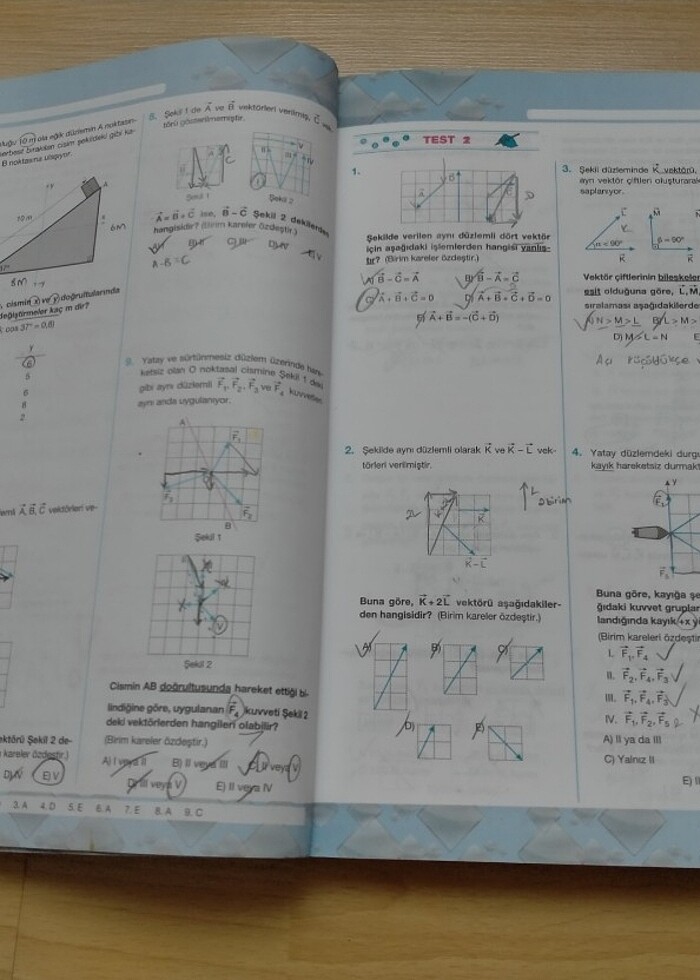 10 m ola eğik düzlemin A noktasın-
B noktasına ulaşıyor.
+y
A
10 m
6m
37°
8m +x
, cismin x ve y doğrultularında
değiştirmeler kaç m dir?
cos 37° = 0,8)
y
6
6
6
8
2
A, B, C vektörleri ve-
ektörü Şekil 2 de-
kareler özdeştir.)
D) IV E) V
3.A 4.D 5.E 6.A 7.E 8.A 9.C
8. Şekil 1 de A ve B vektörleri verilmiş, C
törü gösterilmemiştir.
Şekil 1
Şekil 2
A = B + C ise, B – C Şekil 2 dekilerden
hangisidir? (Birim kareler özdeştir.)
A) I B) II C) III D) IV E) V
A-B=C
9. Yatay ve sürtünmesiz düzlem üzerinde hare-
ketsiz olan O noktasal cismine Şekil 1 deki
gibi aynı düzlemli F1, F2, F3 ve F4 kuvvetleri
aynı anda uygulanıyor.
A
F1
F3
F2
B
Şekil 1
V
Şekil 2
Cismin AB doğrultusunda hareket ettiği bi-
lindiğine göre, uygulanan F4 kuvveti Şekil 2
deki vektörlerden hangileri olabilir?
(Birim kareler özdeştir.)
A) I veya II B) II veya III C) II veya V
D) III veya V E) II veya IV
TEST 2
1.
A
B
C
D
Şekilde verilen aynı düzlemli dört vektör
için aşağıdaki işlemlerden hangisi yanlış-
tır? (Birim kareler özdeştir.)
A) B – C = A B) B – A = C
C) A + B + C = 0 D) A + B + C + D = 0
E) A + B = –(C + D)
2. Şekilde aynı düzlemli olarak K ve K – L vek-
törleri verilmiştir.
2L
K
K – L
L
2 birim
Buna göre, K + 2L vektörü aşağıdakiler-
den hangisidir? (Birim kareler özdeştir.)
A) B) C)
D) E)
3. Şekil düzleminde K vektörü,
ayrı vektör çiftleri oluşturara
saplanıyor.
L
K
α < 90°
K
M
β = 90°
K
Vektör çiftlerinin bileşkeler
eşit olduğuna göre, L, M,
sıralaması aşağıdakilerde
A) N > M > L B) L > M >
D) M > L = N E
Açı küçüldükçe
4. Yatay düzlemdeki durgu
kayık hareketsiz durmakt
y
F1
F5
Buna göre, kayığa şe
ğıdaki kuvvet gruplar
landığında kayık +x y
(Birim kareleri özdeştir
I. F1, F4
II. F2, F4, F3
III. F1, F4, F3
IV. F1, F2, F5
A) II ya da III
C) Yalnız II
E) II